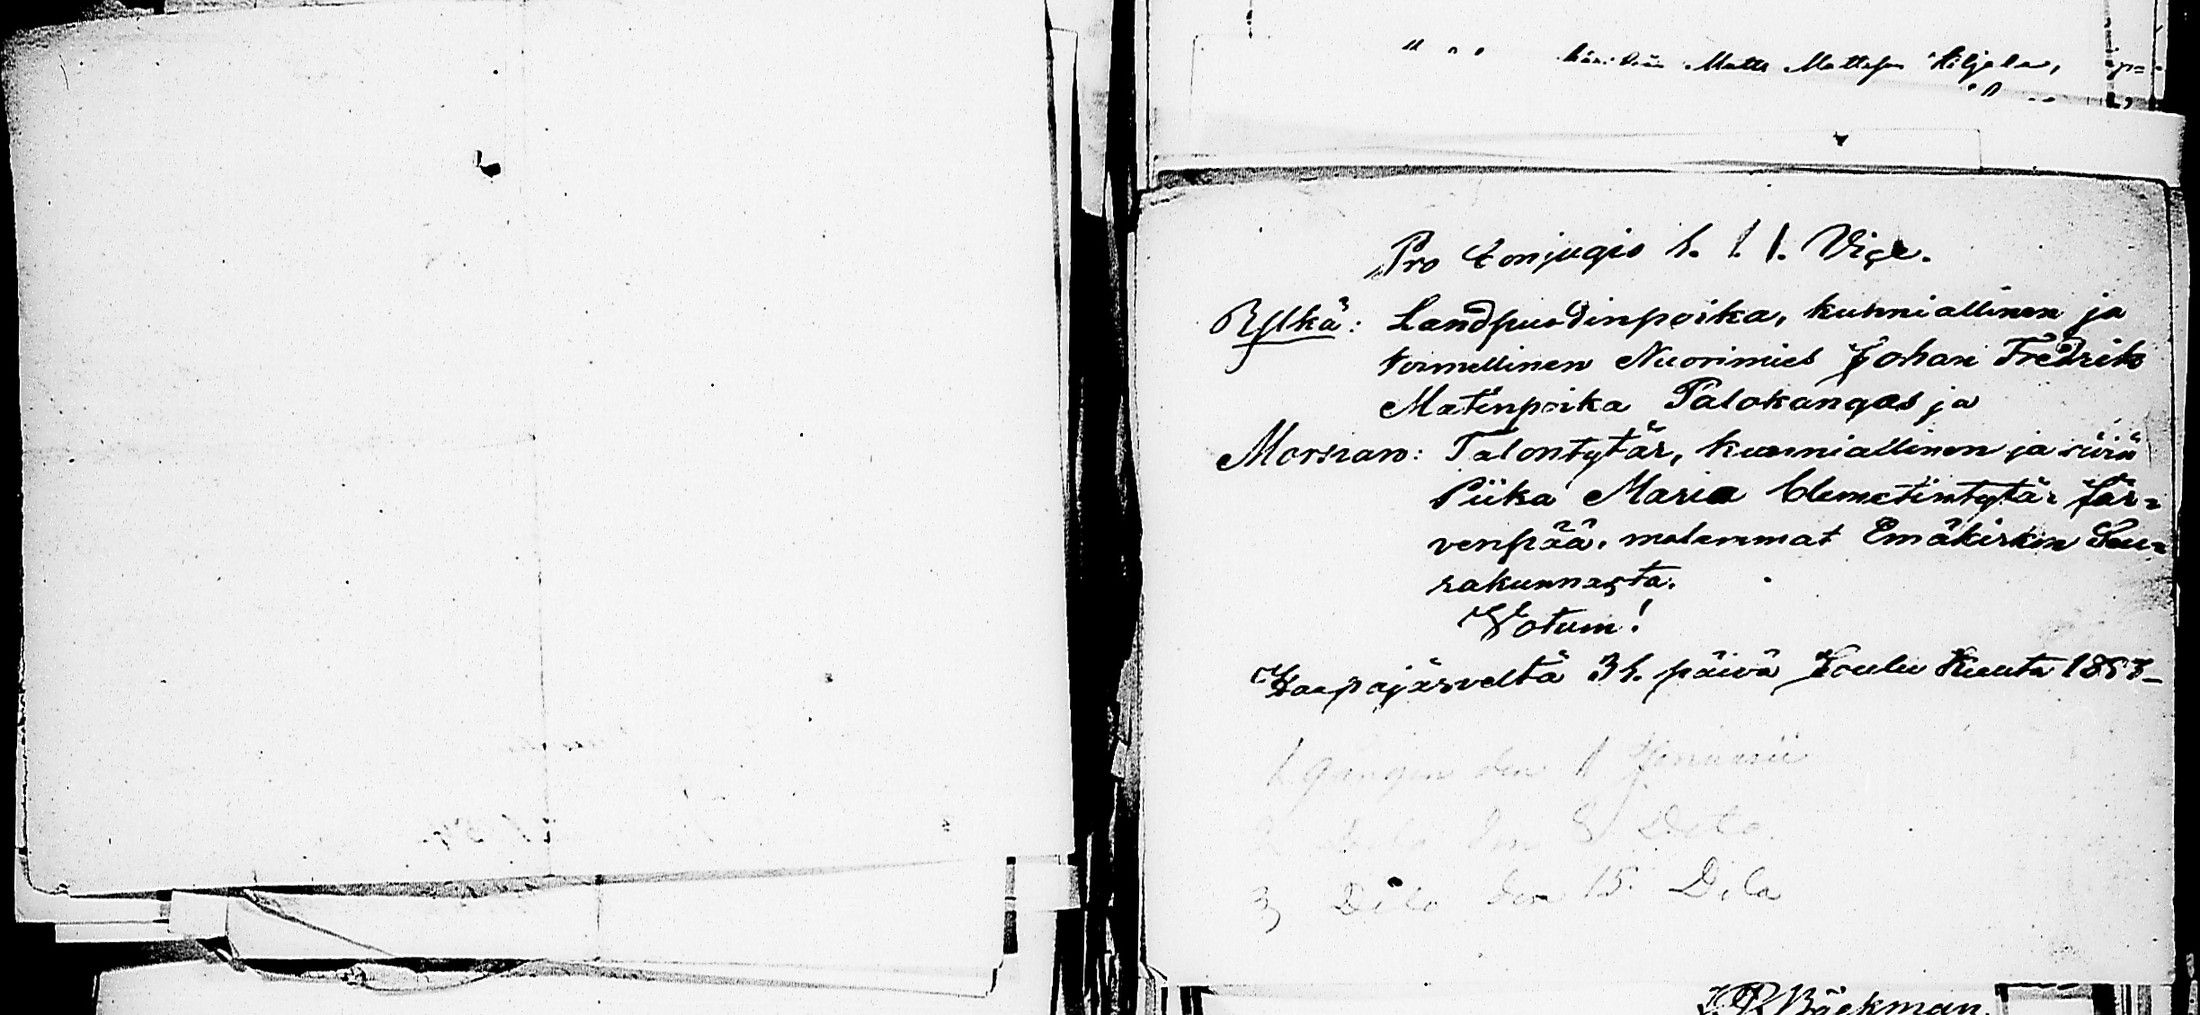 " " " Matts Mattsson Kiljala,
Pro Conjugio h. 1. 1. Viçe.
Ylkä: Landpuodinpoika, kunniallinen ja
toimellinen Nuorimies Johan Fredrik
Matinpoika Palokangas ja
Morsian: Talontytär, kunniallinen ja siviä
Piika Maria Clemetintytär Jär=
venpää, molemmat Emäkirkon Seu=
rakunnasta.
Votum!
Haapajärveltä 31. päivä Joulu Kuuta 1853_
1 gången den 1 Januarii
2 Dito den 8 Dito
3 Dito den 15. Dito
Bäckman.